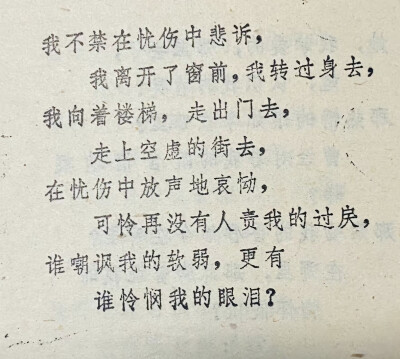 我不禁在忧伤中悲诉，
我离开了窗前，我转过身去，
我向着楼梯，走出门去，
走上空虚的街去，
在忧伤中放声地哀恸，
可怜再没有人责我的过戾，
谁嘲讽我的软弱，更有
谁怜悯我的眼泪？